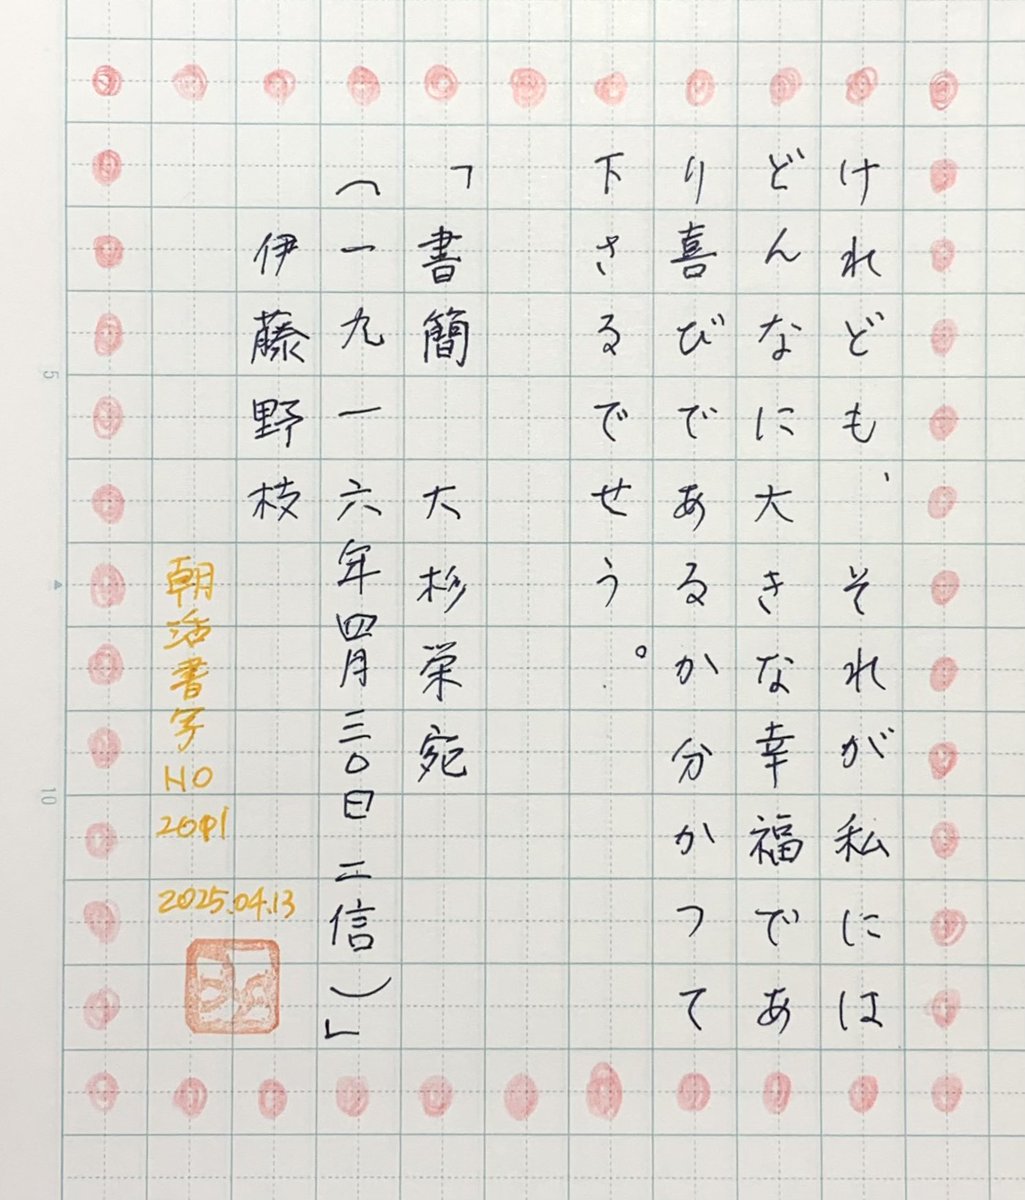 けれども、それが私には
どんなに大きな幸福であ
り喜びであるか分かつて
下さるでせう。
「書簡 大杉栄宛
(一九一六年四月三〇日 二信)」
伊藤野枝
朝活書写
NO
2091
2025.04.13
5
10